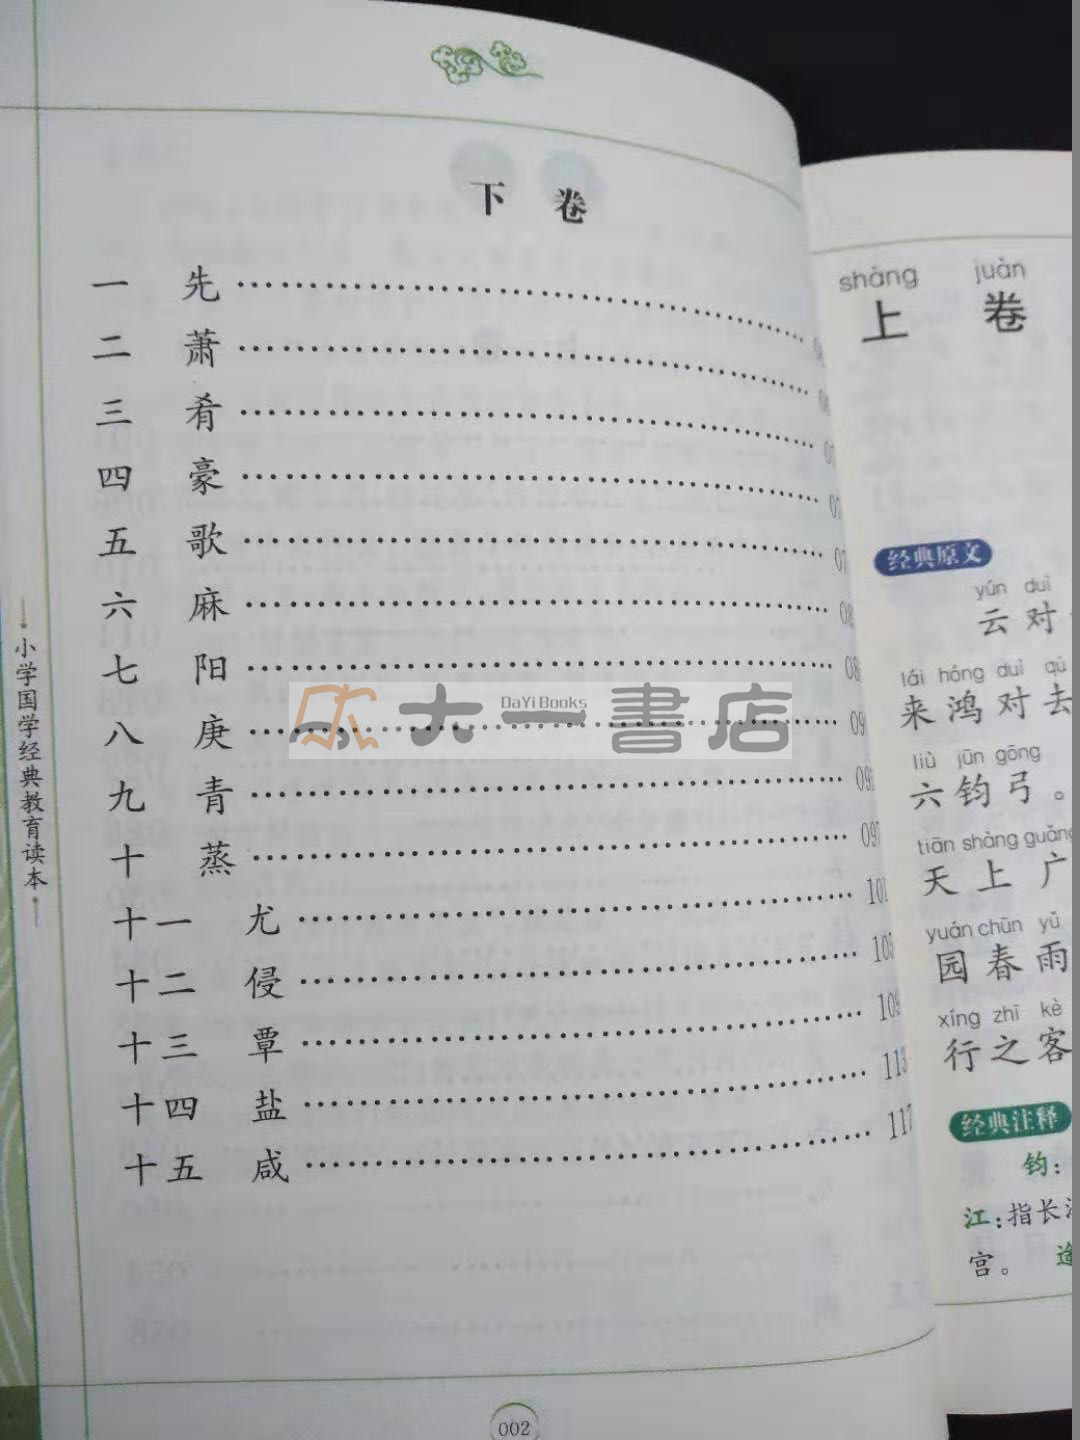 下 卷
一 先
二 萧
三 肴
四 豪
五 歌
六 麻
七 阳
八 庚
九 青
十 蒸
十一 尤
十二 侵 105
十三 覃 109
十四 盐 113
十五 咸 117
小学国学经典教育读本
002
大一書店
DaYi Books
shàng juàn
上 卷
经典原文
yún duì
云 对
lái hóng duì qù
来 鸿 对 去
liù jūn gōng
六 钧 弓 。
tiān shàng guǎng
天 上 广
yuán chūn yǔ
园 春 雨
xíng zhī kè
行 之 客
经典注释
钧：
江：指长
宫。